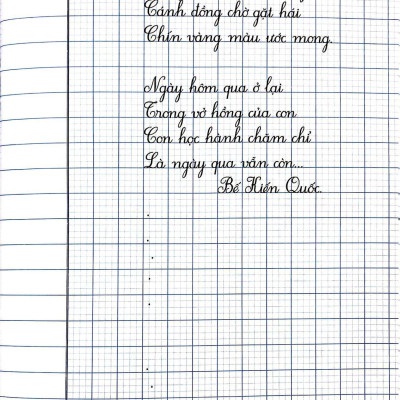 Cánh đồng chờ gặt hái
Chín vàng màu ước mong.
Ngày hôm qua ở lại
Trong vở hồng của con
Con học hành chăm chỉ
Là ngày qua vẫn còn...
Bế Kiến Quốc.